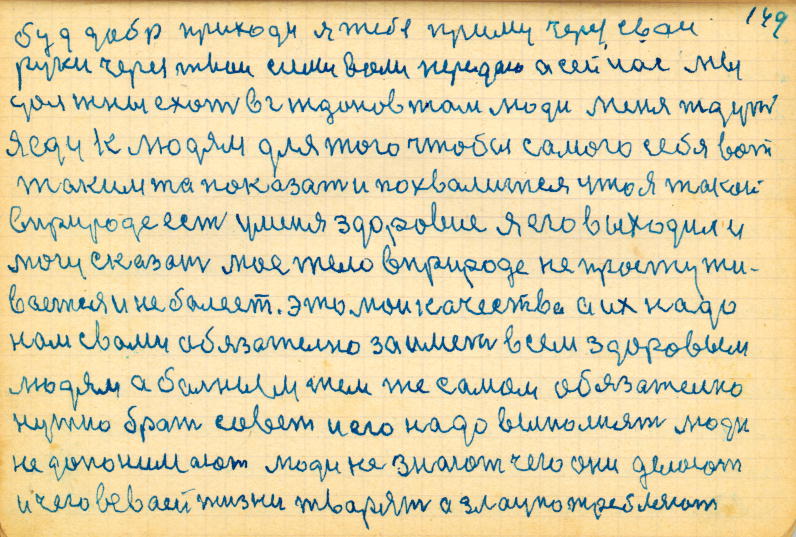 149
буд добр приходи я тебе приму через сваи
руки через твои силы воли передаю а сейчас мы
должны ехат в г ждонов там люди меня ждут
я еду к людям для того чтобы самого себя вот
таким та показат и похвалится что я такой
в природе ест у меня здоровие я его выходил и
могу сказат мое тело в природе не простужи-
вается и не балеет. это мои качества а их надо
нам свами обязателно заимет всем здоровым
людям а балным тем же самом обязателно
нужно брат совет и его надо выполнят люди
не допонимают люди не знают чего они делают
и чего всваей жизни тварят а злаупотребляют